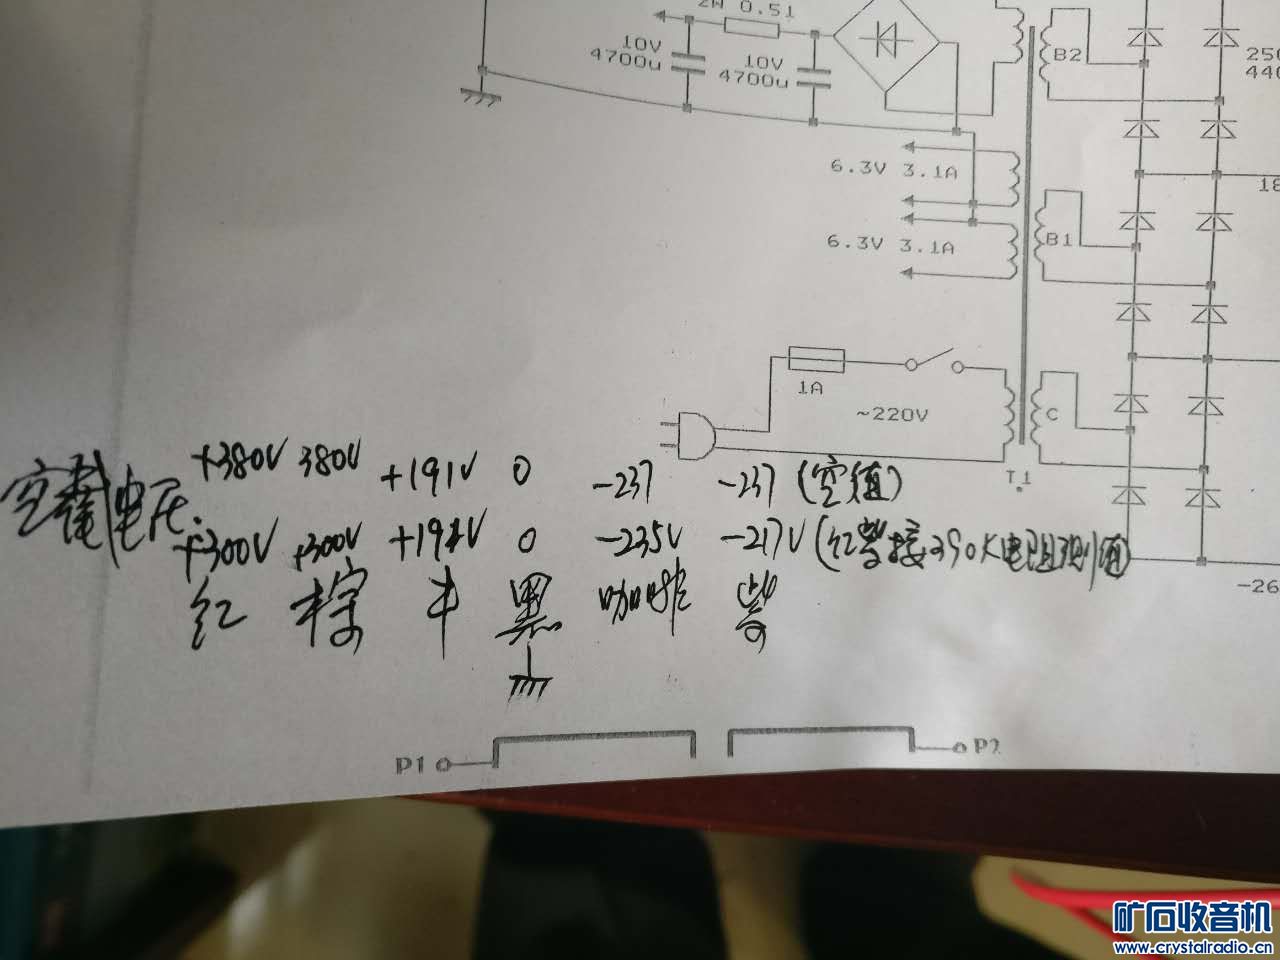 2W 0.51
10V
4700u
10V
4700u
B2
250
440
6.3V 3.1A
18
6.3V 3.1A
B1
1A
~220V
C
T.1
空载电压: +380V 380V +191V 0 -237 -237 (空值)
+300V +300V +191V 0 -235V -217V (红紫接390K电阻测值)
-26
红 棕 黑 咖啡 紫
P1 P2
矿石收音机
www.crystalradio.cn